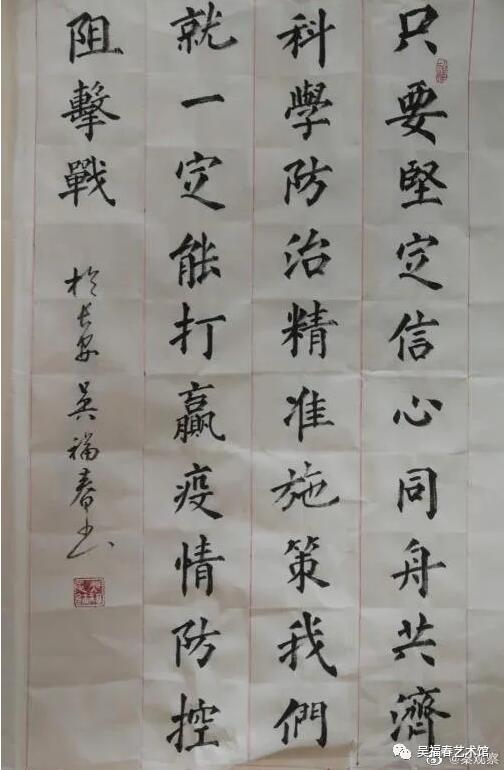 只要堅定信心同舟共濟
科學防治精准施策我們
就一定能打贏疫情防控
阻擊戰
於長安吳福春书
吴福春艺术馆
@秦观察